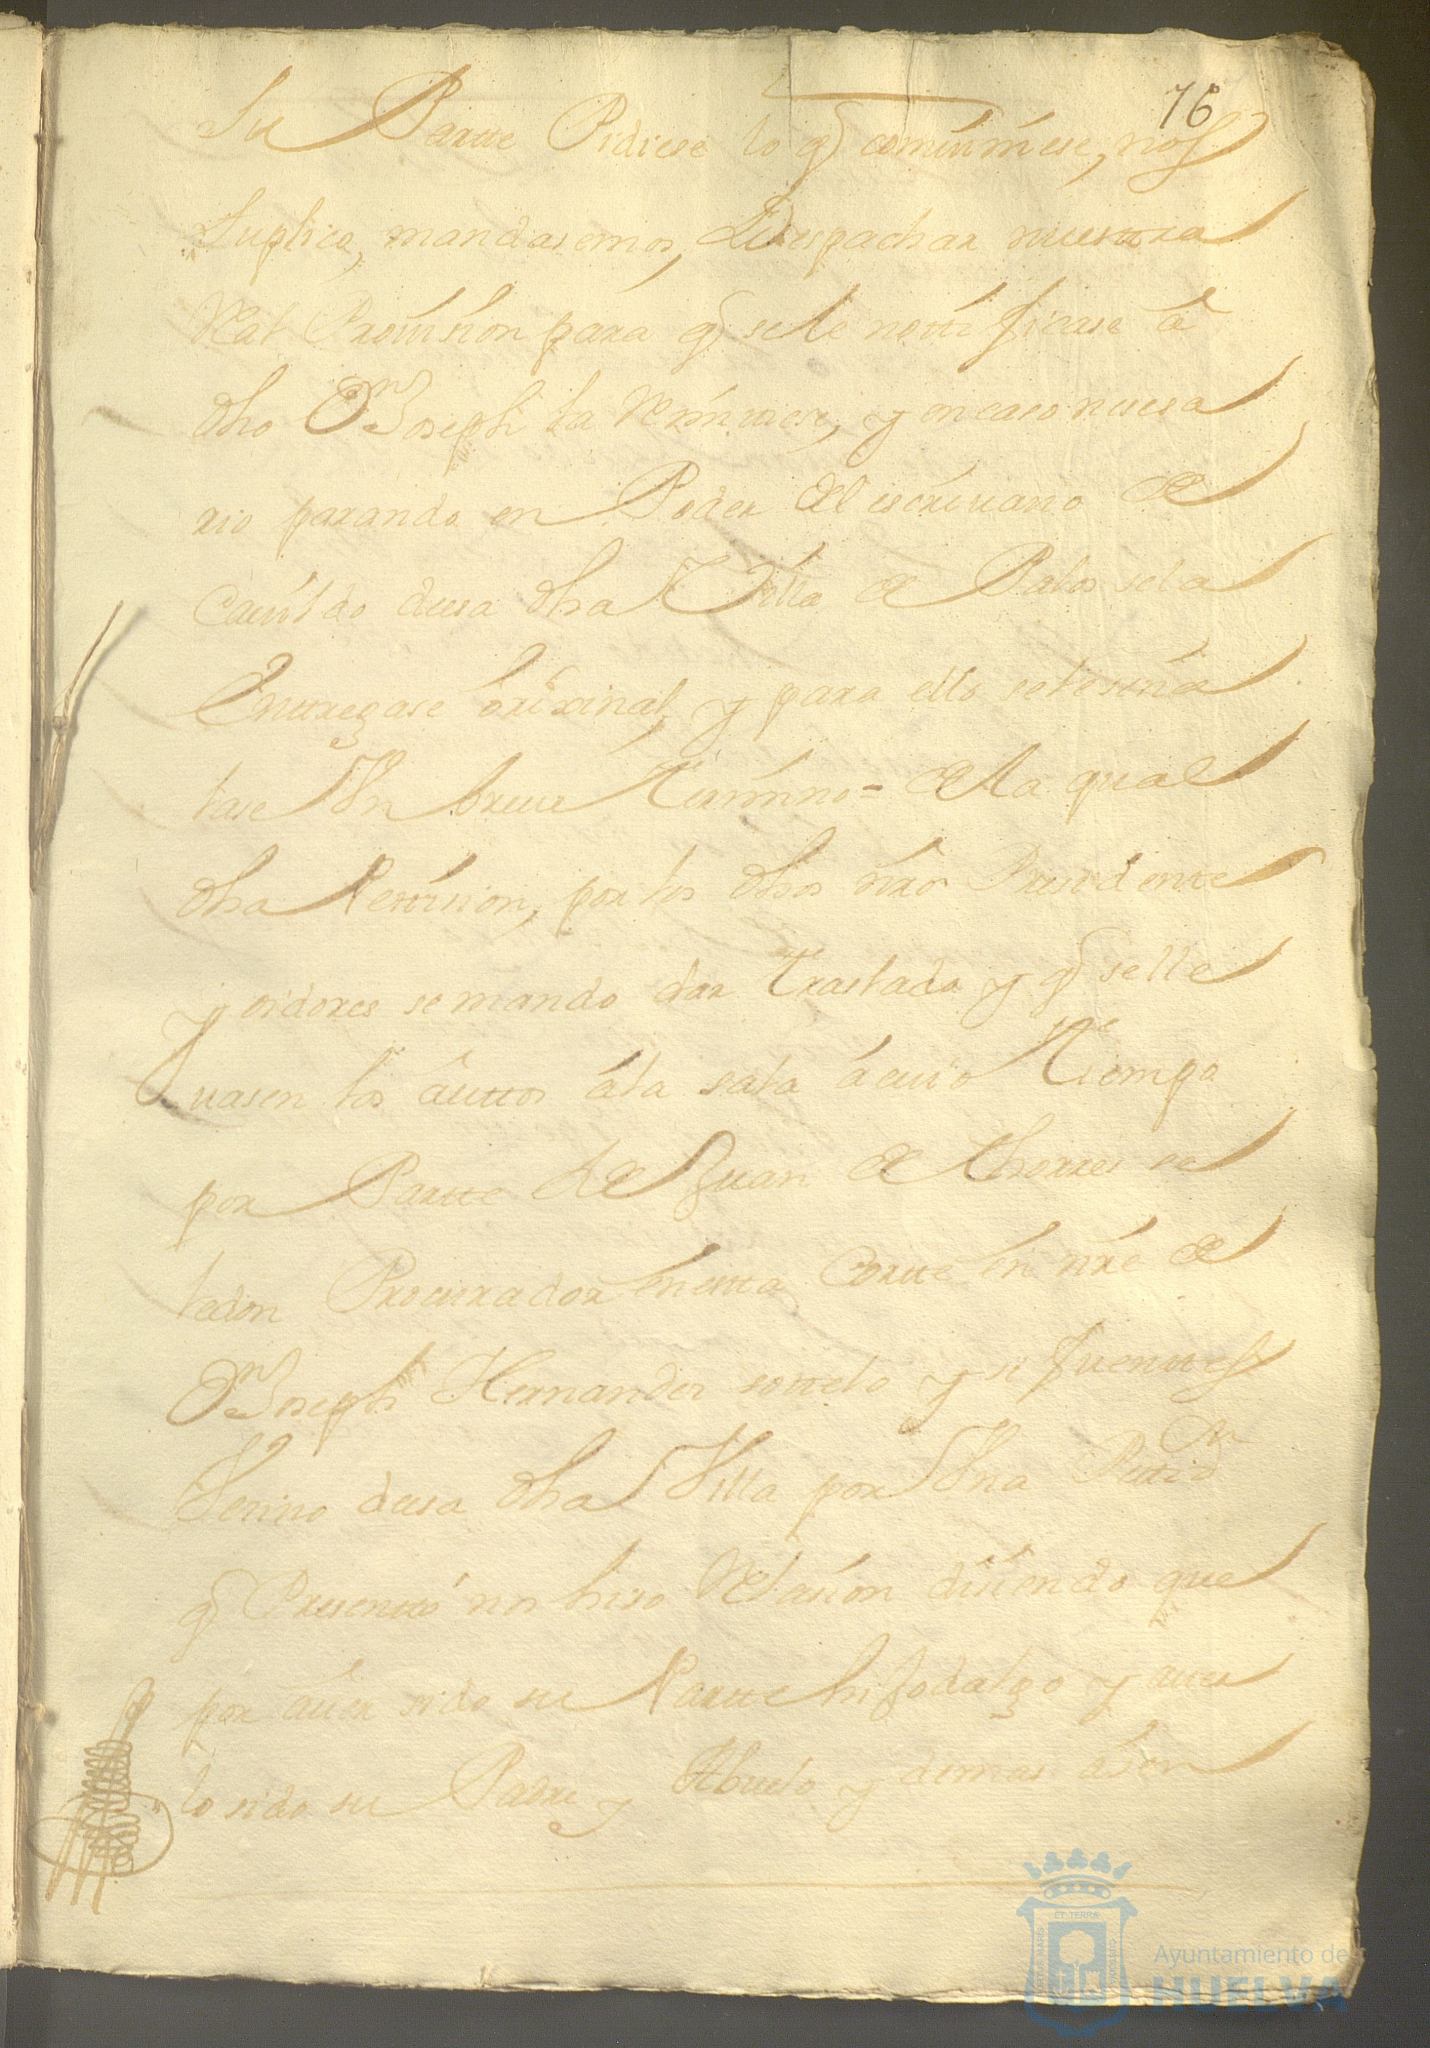 76
Su Partte Pidiese lo q combiniese, nos
Suplico, mandasemos, Despachar nuesttra
Real Provision para q sele nottificase â
dho Dn Joseph la Remitiese, y en caso nesesa
rio parando en Poder del escrivano de
Cavildo desa dha Villa de Palos sela
Enttregase orixinal, y para ello sele seña
lase Un breve Termino = de la qual
dha Pettision, por los dhos nros Presidentte
y oidores se mando dar Traslado y q selle
vasen los âuttos âla sala âcuio Tiempo
por Partte de Juan de Thorres se
ledon Procurador en estta Cortte en nre de
Dn Joseph Hernandez sottelo y se fuenttes
Vesino desa dha Villa por Una Pettion
q Presentto nos hiso Relasion disiendo que
por aver sido su Partte hijodalgo y aver
lo sido su Padre y Abuelo y demas âsen
ET TERRA
Ayuntamiento de
HUELVA